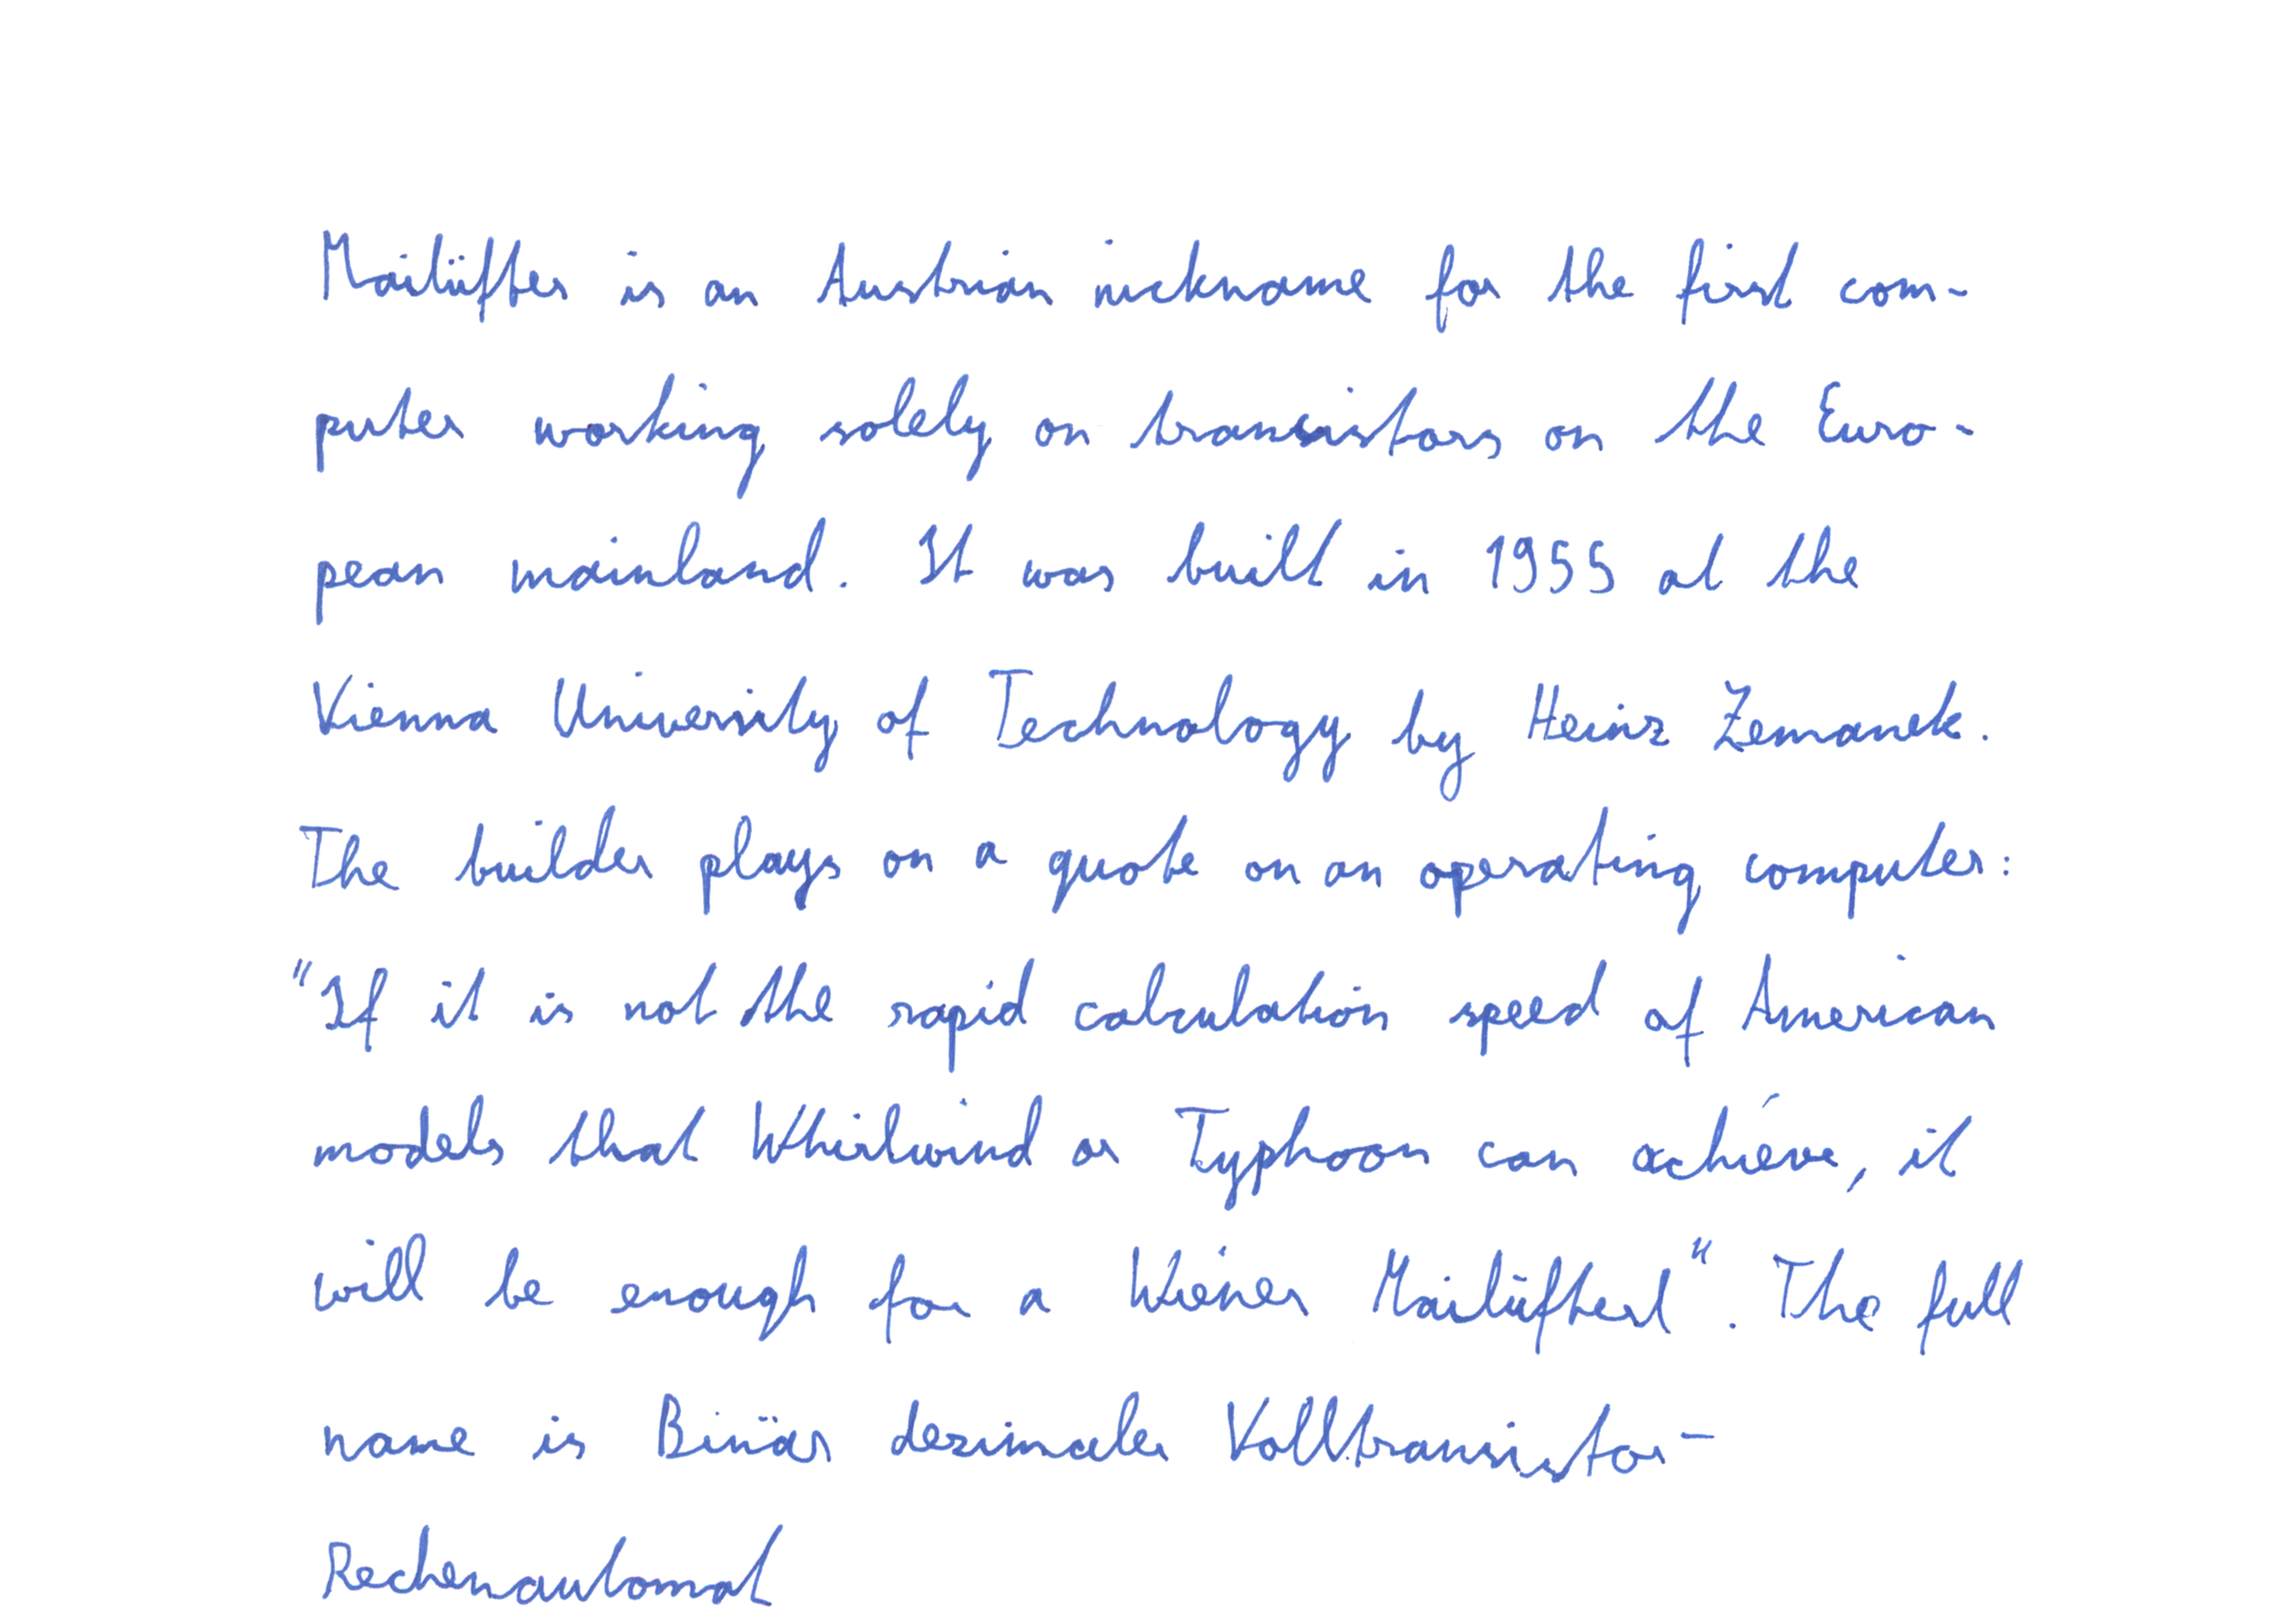 Mailüfter is an Austrian nickname for the first com-
puter working solely on transistors on the Euro-
pean mainland. It was built in 1955 at the
Vienna University of Technology by Heinz Zemanek.
The builder plays on a quote on an operating computer:
"If it is not the rapid calculation speed of American
models that Whirlwind or Typhoon can achieve, it
will be enough for a Wiener Mailüfterl". The full
name is Binär dezimaler Volltransistor-
Rechenautomat